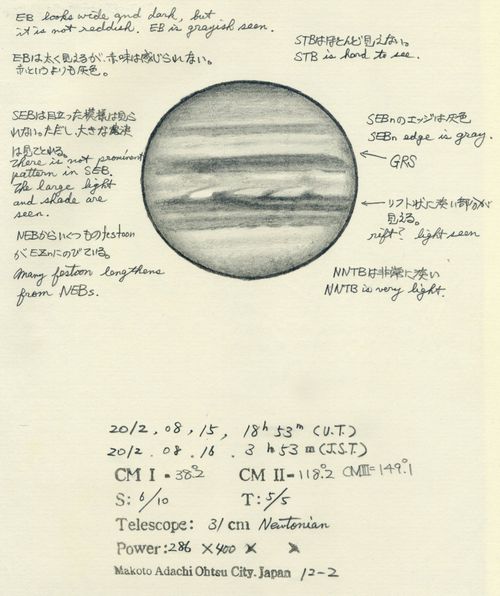 EB looks wide and dark, but
it is not reddish. EB is grayish seen.
EBは太く見えるが、赤味は感じられない。
赤というよりも灰色。
STBはほとんど見えない。
STB is hard to see.
SEBは目立った模様は見ら
れない。ただし、大きな濃淡
は見てとれる。
There is not prominent
pattern in SEB.
The large light
and shade are
seen.
NEBからいくつものfestoon
が EZnにのびている。
many festoon lengthens
from NEBs.
SEBnのエッジは灰色
SEBn edge is gray.
GRS
リフト状に淡い部分が
見える。
rift? light seen
NNTBは非常に淡い
NNTB is very light.
2012, 08, 15, 18h 53m (U.T.)
2012. 08. 16. 3h 53m (J.S.T.)
CM I = 38.°2 CM II = 118.°2 CMIII= 149.°1
S: 6/10 T: 5/5
Telescope: 31 cm Newtonian
Power: 286 ×400 × ×
Makoto Adachi Ohtsu City. Japan 12-2